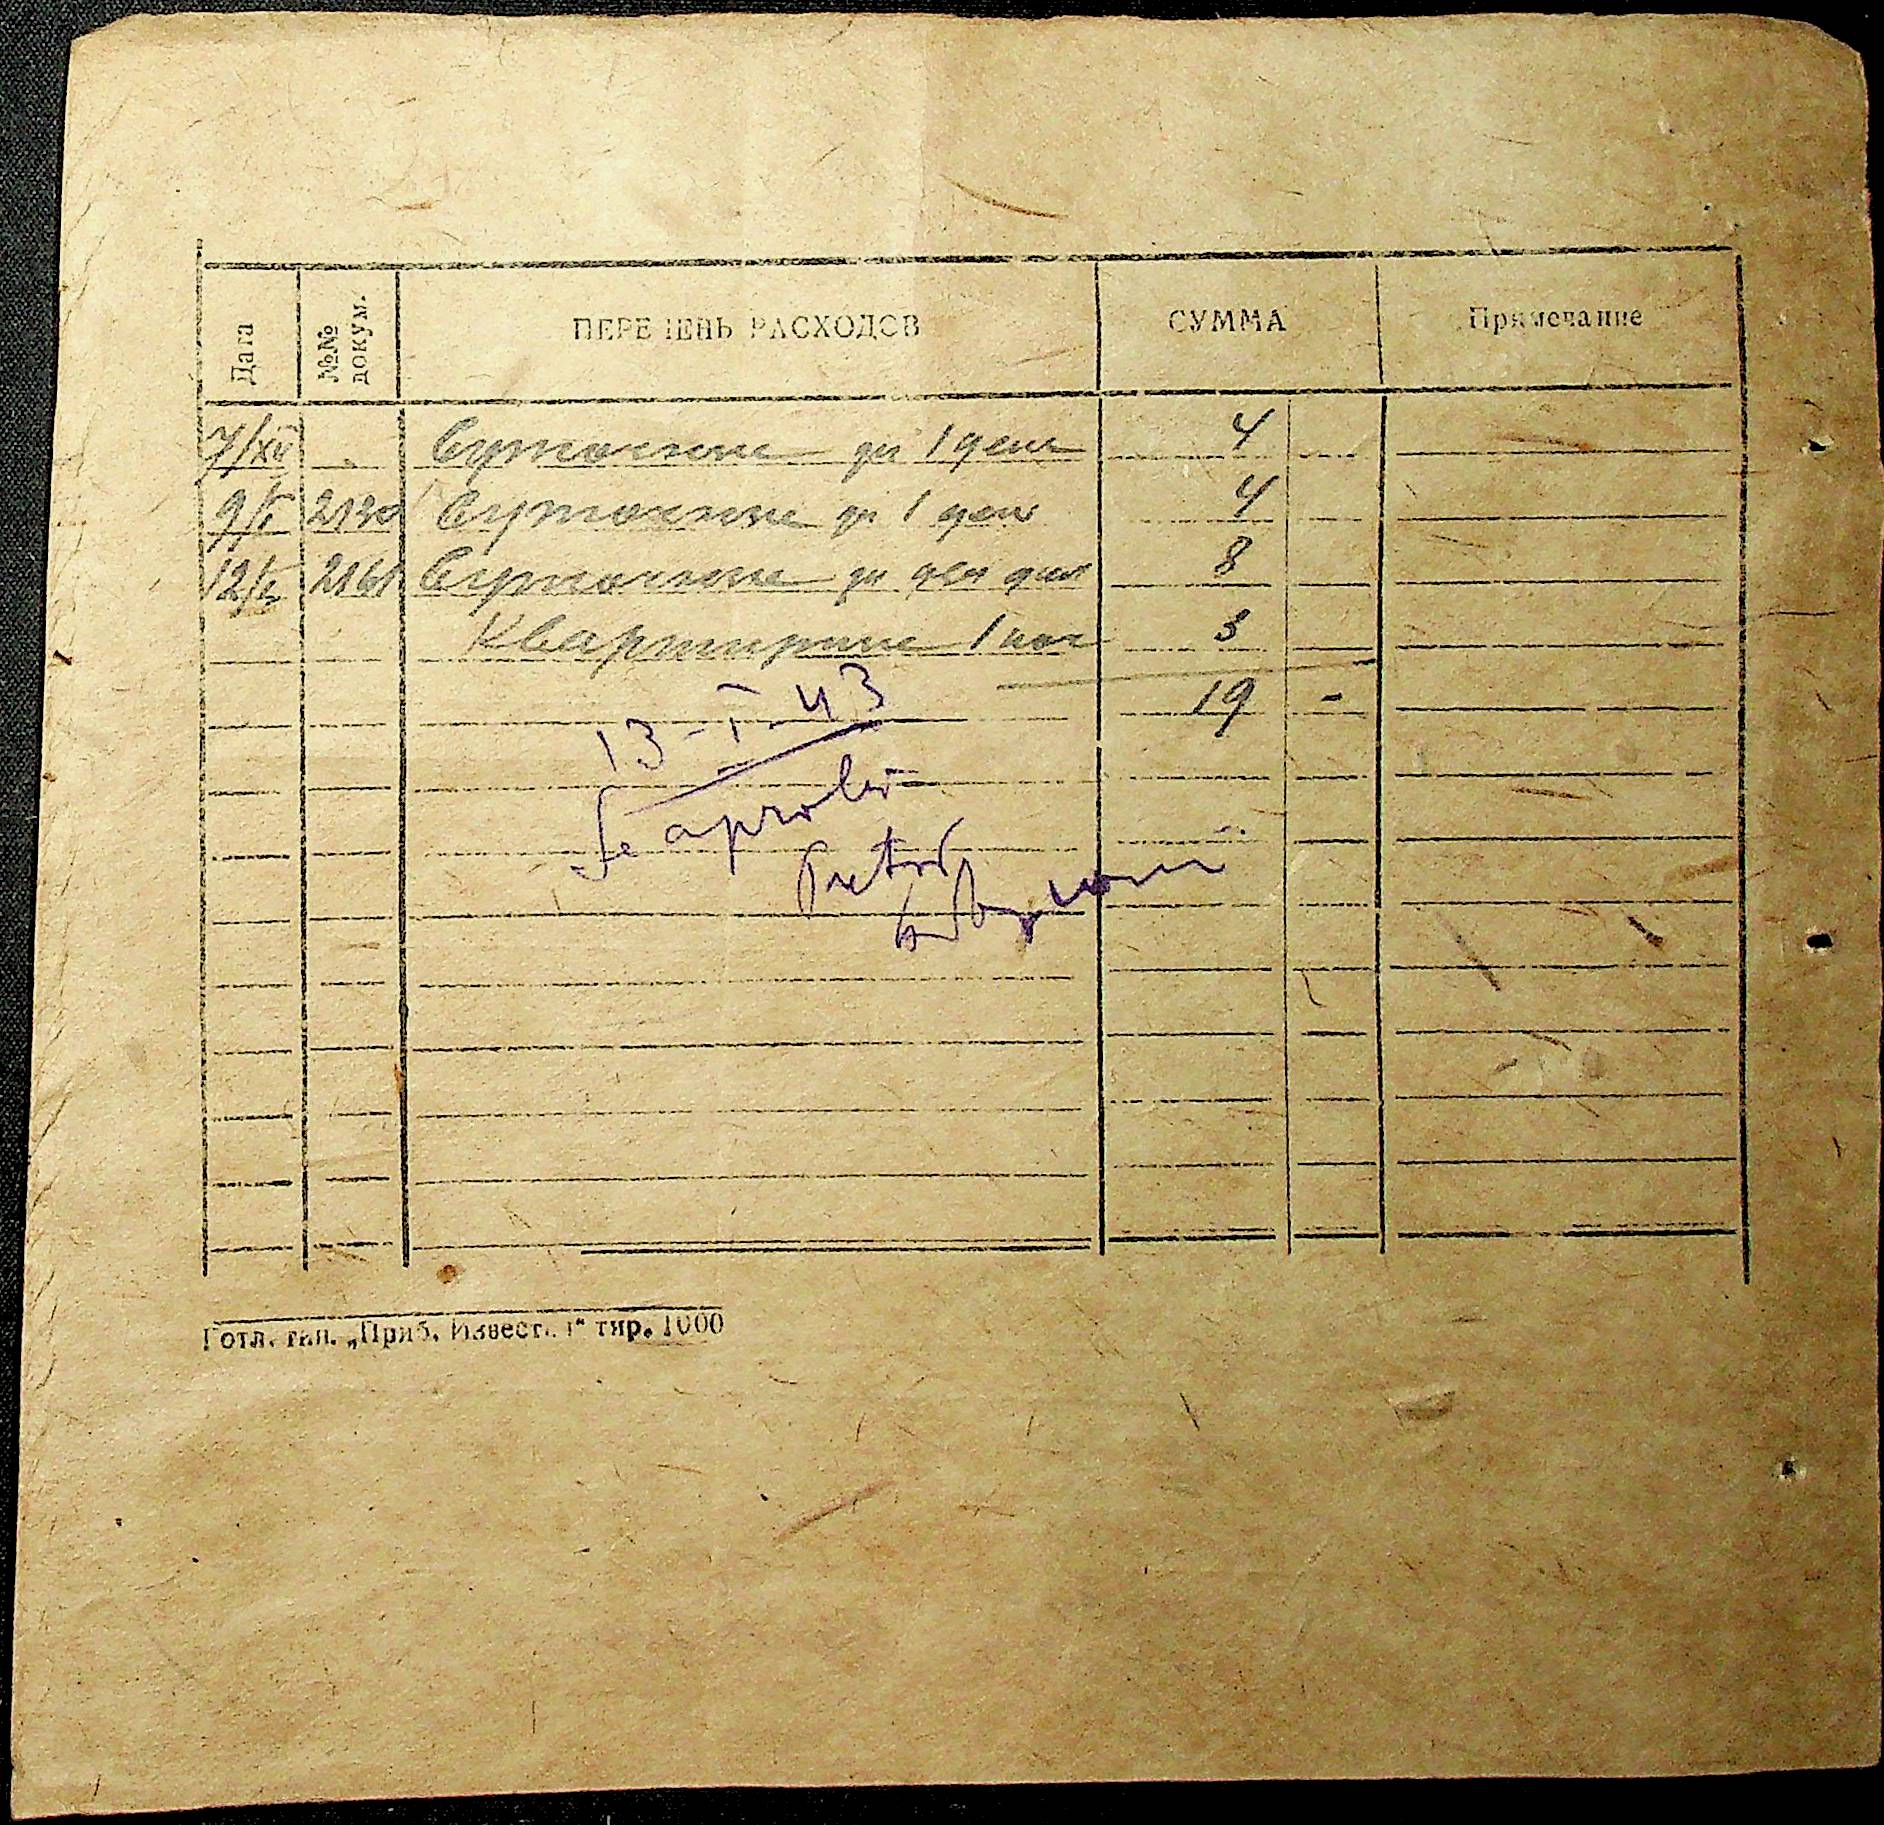 Дата №№ докум. ПЕРЕЧЕНЬ РАСХОДОВ СУММА Примечание
7/XII Суточные за 1 день 4
9/I 2130 Суточные за 1 день 4
12/I 2161 Суточные за два дня 8
Квартирные 1 ноч 3
19 -
13-I-43
Se aprobă
Готл. тип. „Приб. Извест. тир. 1000